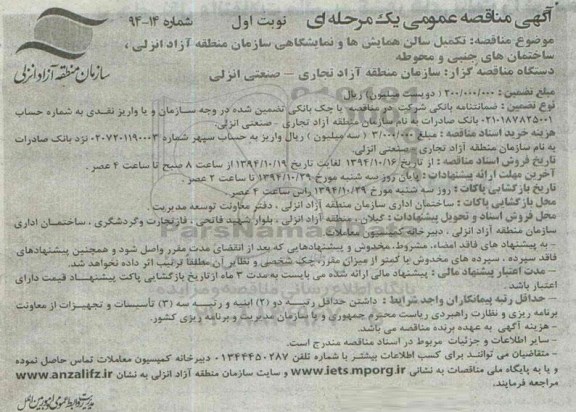 آگهی مناقصه عمومی یک مرحله‌ای نوبت اول شماره ۱۴-۹۴
سازمان منطقه آزاد انزلی
موضوع مناقصه: تکمیل سالن همایش ها و نمایشگاهی سازمان منطقه آزاد انزلی ،
ساختمان های جنبی و محوطه
دستگاه مناقصه گزار: سازمان منطقه آزاد تجاری – صنعتی انزلی
مبلغ تضمین : ۲۰۰/۰۰۰/۰۰۰ ( دویست میلیون) ریال
نوع تضمین : ضمانتنامه بانکی شرکت در مناقصه یا چک بانکی تضمین شده در وجه سازمان و یا واریز نقدی به شماره حساب
۰۲۱۰۱۸۷۸۲۵۰۰۱ بانک صادرات به نام سازمان منطقه آزاد تجاری - صنعتی انزلی.
هزینه خرید اسناد مناقصه : مبلغ ۳/۰۰۰/۰۰۰ ( سه میلیون ) ریال واریز به حساب سپهر شماره ۰۲۰۷۲۰۱۱۹۰۰۰۳ نزد بانک صادرات
به نام سازمان منطقه آزاد تجاری - صنعتی انزلی.
تاریخ فروش اسناد مناقصه : از تاریخ ۱۳۹۴/۱۰/۱۶ لغایت تاریخ ۱۳۹۴/۱۰/۱۹ از ساعت ۸ صبح تا ساعت ۴ عصر .
آخرین مهلت ارائه پیشنهادات : پایان روز سه شنبه مورخ ۱۳۹۴/۱۰/۲۹ تا ساعت ۲ عصر .
تاریخ بازگشایی پاکات : روز سه شنبه مورخ ۱۳۹۴/۱۰/۲۹ راس ساعت ۴ عصر
محل بازگشایی پاکات : ساختمان اداری سازمان منطقه آزاد انزلی ، دفتر معاونت توسعه مدیریت .
محل فروش اسناد و تحویل پیشنهادات : گیلان ، منطقه آزاد انزلی ، بلوار شهید فاتحی ، فاز تجارت وگردشگری ، ساختمان اداری
سازمان منطقه آزاد انزلی ، دبیرخانه کمیسیون معاملات
- به پیشنهاد های فاقد امضاء، مشروط، مخدوش و پیشنهادهایی که بعد از انقضای مدت مقرر واصل شود و همچنین پیشنهادهای
فاقد سپرده ، سپرده های مخدوش یا کمتر از میزان مقرر، چک شخصی و نظایر آن مطلقا ترتیب اثر داده نخواهد شد.
– مدت اعتبار پیشنهاد مالی : پیشنهاد مالی ارائه شده می بایست به مدت ۳ ماه از تاریخ بازگشایی پاکت پیشنهاد قیمت دارای
اعتبار باشد.
– حداقل رتبه پیمانکاران واجد شرایط : داشتن حداقل رتبه دو (۲) ابنیه و رتبه سه (۳) تأسیسات و تجهیزات از معاونت
برنامه ریزی و نظارت راهبردی ریاست محترم جمهوری و یا سازمان مدیریت و برنامه ریزی کشور.
- هزینه آگهی به عهده برنده مناقصه می باشد.
- سایر اطلاعات و جزئیات مربوط در اسناد مناقصه مندرج است.
- متقاضیان می توانند برای کسب اطلاعات بیشتر با شماره تلفن ۰۱۳۴۴۴۵۰۲۸۷ دبیرخانه کمیسیون معاملات تماس حاصل نموده
و یا به پایگاه ملی مناقصات به نشانی www.iets.mporg.ir و سایت سازمان منطقه آزاد انزلی به نشان www.anzalifz.ir
مراجعه فرمایند.